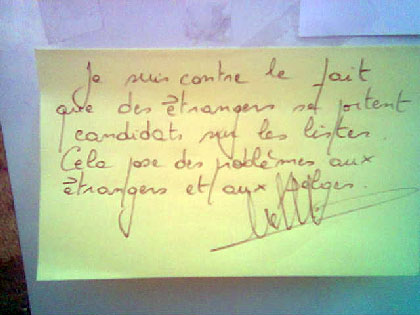 Je suis contre le fait
que des étrangers se portent
candidats sur les listes.
Cela pose des problèmes aux
étrangers et aux belges.